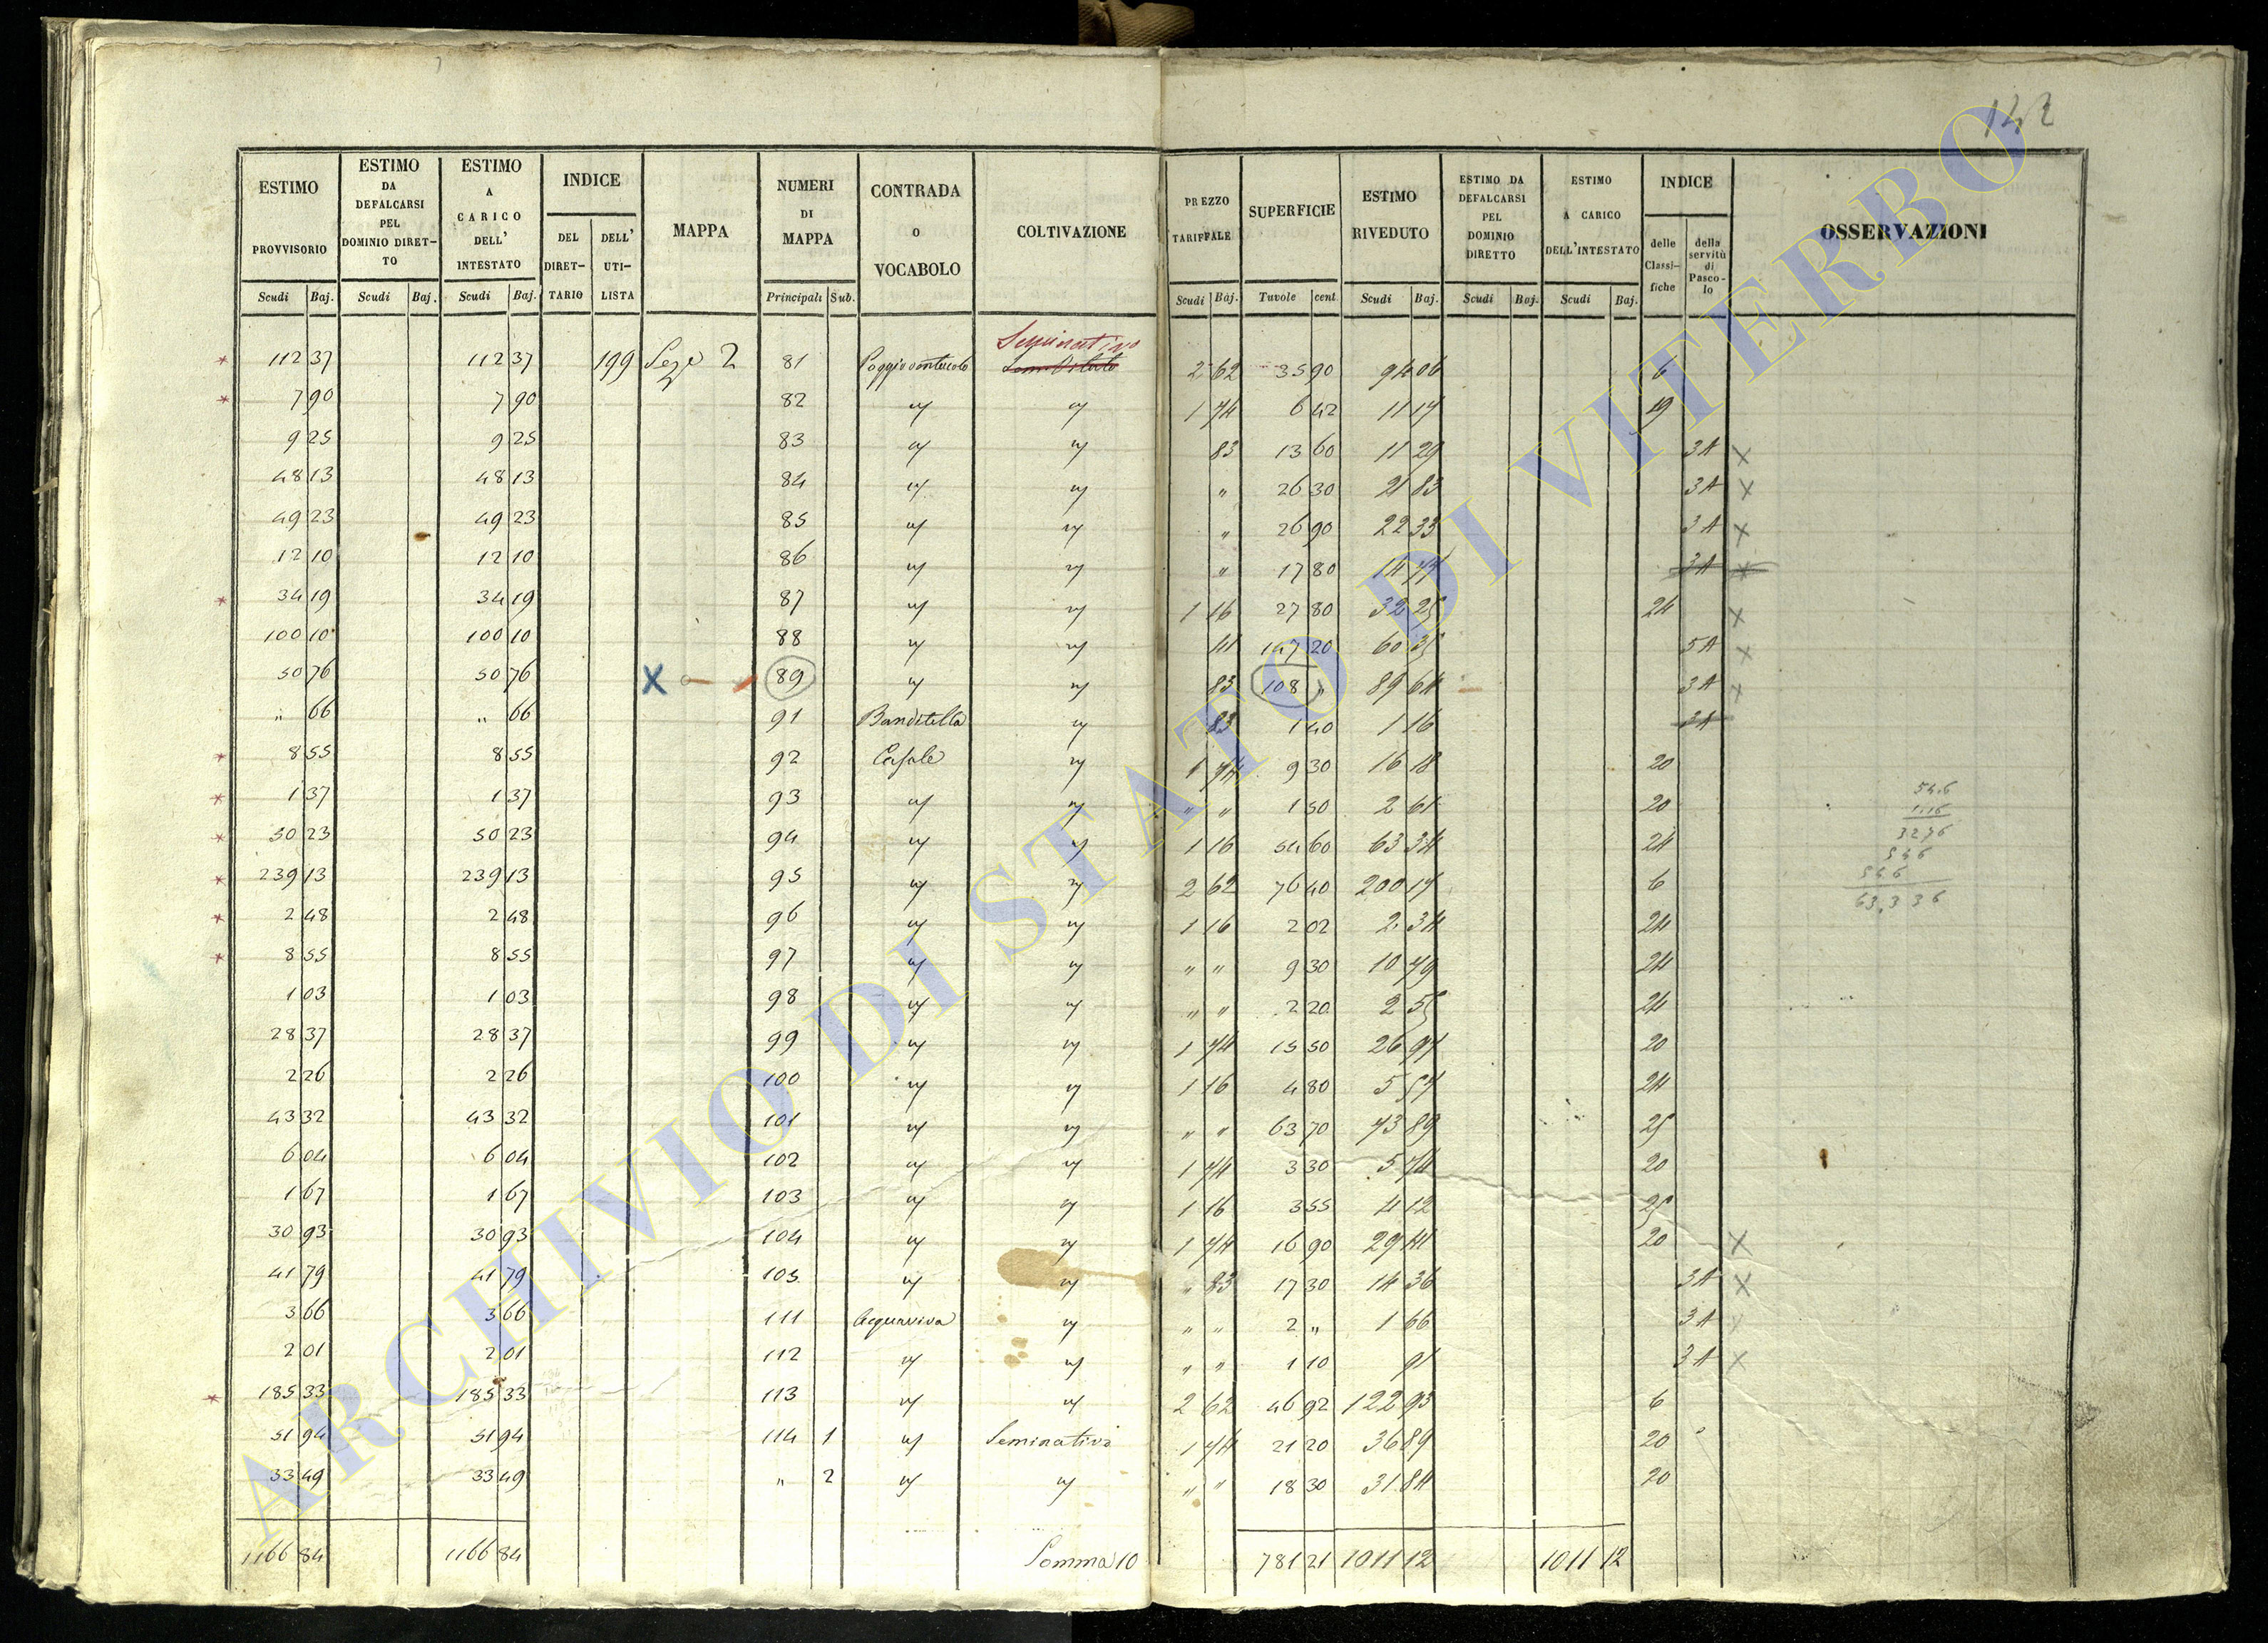 142
ESTIMO PROVVISORIO | ESTIMO DA DEFALCARSI PEL DOMINIO DIRET-TO | ESTIMO A CARICO DELL' INTESTATO | INDICE | MAPPA | NUMERI DI MAPPA | CONTRADA o VOCABOLO | COLTIVAZIONE | PREZZO TARIFFALE | SUPERFICIE | ESTIMO RIVEDUTO | ESTIMO DA DEFALCARSI PEL DOMINIO DIRETTO | ESTIMO A CARICO DELL'INTESTATO | INDICE | OSSERVAZIONI
DEL DIRET-TARIO | DELL' UTI-LISTA | delle Classi-fiche | della servitù di Pasco-lo
Scudi | Baj. | Scudi | Baj. | Scudi | Baj. | Principali | Sub. | Scudi | Baj. | Tavole | cent. | Scudi | Baj. | Scudi | Baj. | Scudi | Baj.
Seminativo
* 112 37 | 112 37 | 199 | Sez.e 2 | 81 | 2 62 | 35 90 | 94 06 | 6
* 7 90 | 7 90 | 82 | " | " | 1 74 | 6 42 | 11 17 | 19
9 25 | 9 25 | 83 | " | " | 83 | 13 60 | 11 29 | 3A x
48 13 | 48 13 | 84 | " | " | " | 26 30 | 21 83 | 3A x
49 23 | 49 23 | 85 | " | " | " | 26 90 | 22 33 | 3A x
12 10 | 12 10 | 86 | " | " | " | 17 80 | 14 77 | 3A x
* 34 19 | 34 19 | 87 | " | " | 1 16 | 27 80 | 32 25 | 24 x
100 10 | 100 10 | 88 | " | " | 41 | 147 20 | 60 35 | 5A x
50 76 | 50 76 | x | 89 | " | " | 83 | 108 " | 89 64 | 3A x
" 66 | " 66 | 91 | Banditella | " | 83 | 1 40 | 1 16 | 3A
* 8 55 | 8 55 | 92 | Casale | " | 1 74 | 9 30 | 16 18 | 20
* 1 37 | 1 37 | 93 | " | " | " " | 1 50 | 2 61 | 20
* 50 23 | 50 23 | 94 | " | " | 1 16 | 54 60 | 63 34 | 24
* 239 13 | 239 13 | 95 | " | " | 2 62 | 76 40 | 200 17 | 6
* 2 48 | 2 48 | 96 | " | " | 1 16 | 2 02 | 2 34 | 24
* 8 55 | 8 55 | 97 | " | " | " " | 9 30 | 10 79 | 24
1 03 | 1 03 | 98 | " | " | " " | 2 20 | 2 55 | 24
28 37 | 28 37 | 99 | " | " | 1 74 | 15 50 | 26 97 | 20
2 26 | 2 26 | 100 | " | " | 1 16 | 4 80 | 5 57 | 24
43 32 | 43 32 | 101 | " | " | " " | 63 70 | 73 89 | 25
6 04 | 6 04 | 102 | " | " | 1 74 | 3 30 | 5 74 | 20
1 67 | 1 67 | 103 | " | " | 1 16 | 3 55 | 4 12 | 25
30 93 | 30 93 | 104 | " | " | 1 74 | 16 90 | 29 41 | 20 x
41 79 | 41 79 | 105 | " | " | " 83 | 17 30 | 14 36 | 3A x
3 66 | 3 66 | 111 | Acquaviva | " | " " | 2 " | 1 66 | 3A x
2 01 | 2 01 | 112 | " | " | " " | 1 10 | 91 | 3A x
* 185 33 | 185 33 | 113 | " | " | 2 62 | 46 92 | 122 93 | 6
51 94 | 51 94 | 114 | 1 | " | Seminativo | 1 74 | 21 20 | 36 89 | 20
33 49 | 33 49 | " | 2 | " | " | " " | 18 30 | 31 84 | 20
1166 84 | 1166 84 | Somma 10 | 781 21 | 1011 12 | 1011 12
54.6
1.16
3276
546
546
63.336
ARCHIVIO DI STATO DI VITERBO